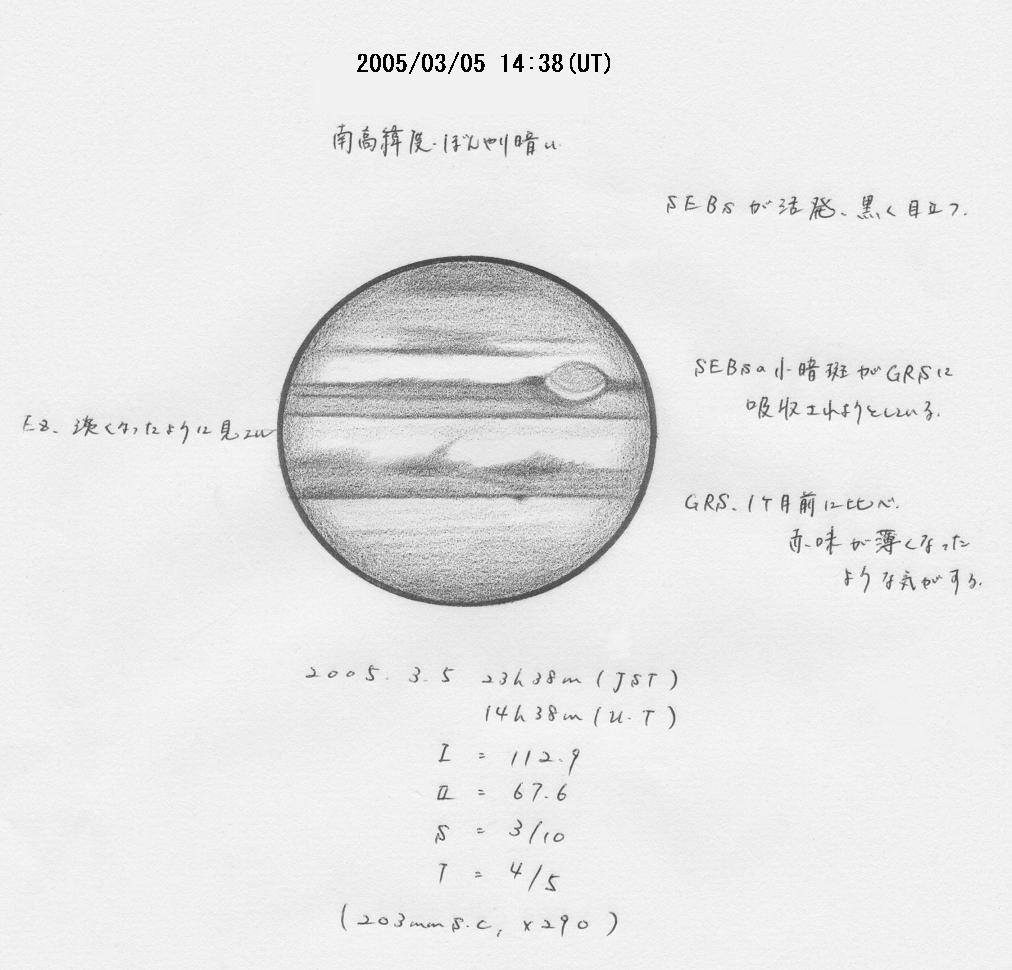 2005/03/05 14:38(UT)
南高緯度.ぼんやり暗い.
SEBsが活発、黒く目立つ.
SEBsの小暗斑がGRSに
吸収されようとしている.
EZ、淡くなったように見える
GRS、1ケ月前に比べ.
赤味が薄くなった
ような気がする.
2005. 3. 5 23h38m (JST)
14h38m (U.T)
I = 112.9
II = 67.6
S = 3/10
T = 4/5
(203mm S.C, ×290)